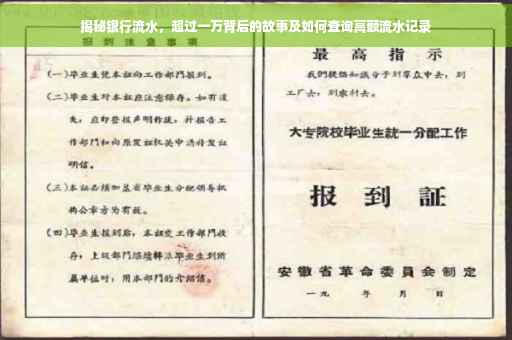 揭秘银行流水，超过一万背后的故事及如何查询高额流水记录
报到注意事项
(一) 毕业生凭本证向工作部门报到。
(二) 毕业生对本证应注意保存。如有遗
失，应即登报声明作废，并报告工
作部门和向原发证机关申请补发证
明信。
(三) 本证必须加盖省毕业生分配领导机
构公章方为有效。
(四) 毕业生报到后，本证交工作部门收
存，上级部门继续转派毕业生到所
属单位时，用本部门的介绍信。
最高指示
我们提倡知识分子到群众中去，到
工厂去，到农村去。
大专院校毕业生統一分配工作
报到証
安徽省革命委員会制定
一九 年 月 日